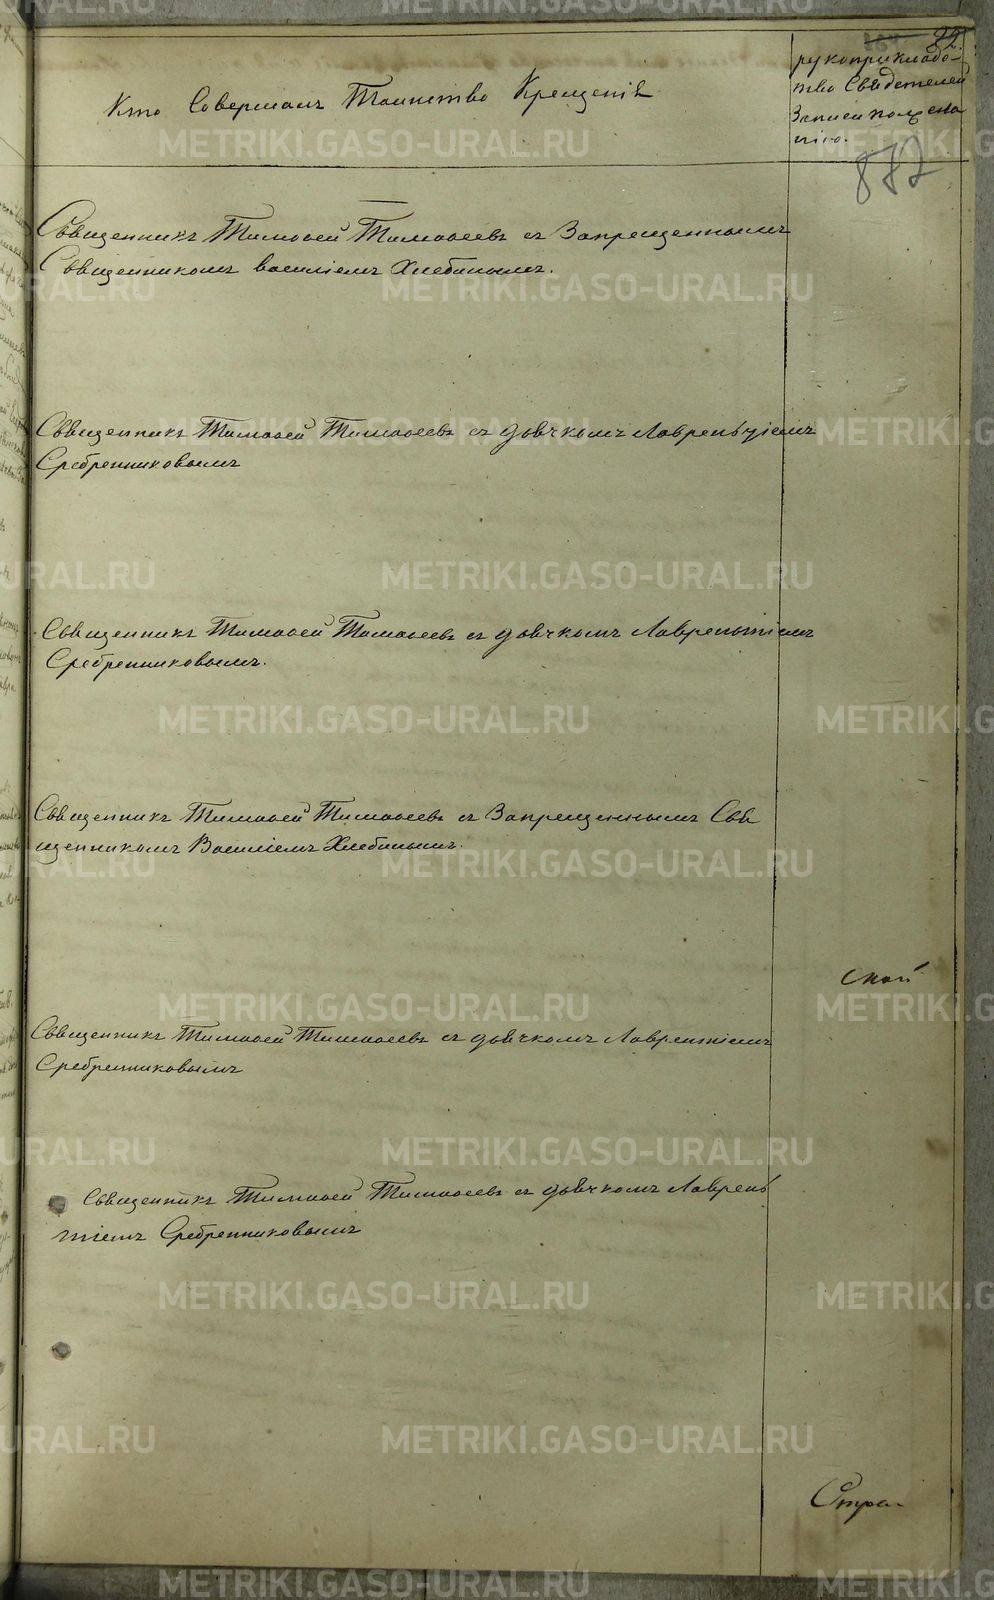 82.
Кто Совершалъ Таинство Крещенія
рукоприкладс-
тво Свидетелей
Записи по желa
нію.
887
Священникъ Тимоѳей Тимоѳеевъ съ Запрещеннымъ
Священникомъ василіемъ Хлебинымъ.
Священникъ Тимоѳей Тимоѳеевъ съ дьячкомъ Лаврентіемъ
Сребренниковымъ
Священникъ Тимоѳей Тимоѳеевъ съ дьячкомъ Лаврентіемъ
Сребренниковымъ.
Священникъ Тимоѳей Тимоѳеевъ съ Запрещеннымъ Свя
щенникомъ Василіемъ Хлебинымъ.
ской
Священникъ Тимоѳей Тимоѳеевъ съ дьячкомъ Лаврентіемъ
Сребренниковымъ
Священникъ Тимоѳей Тимоѳеевъ съ дьячкомъ Лаврень
тіемъ Сребренниковымъ
METRIKI.GASO-URAL.RU